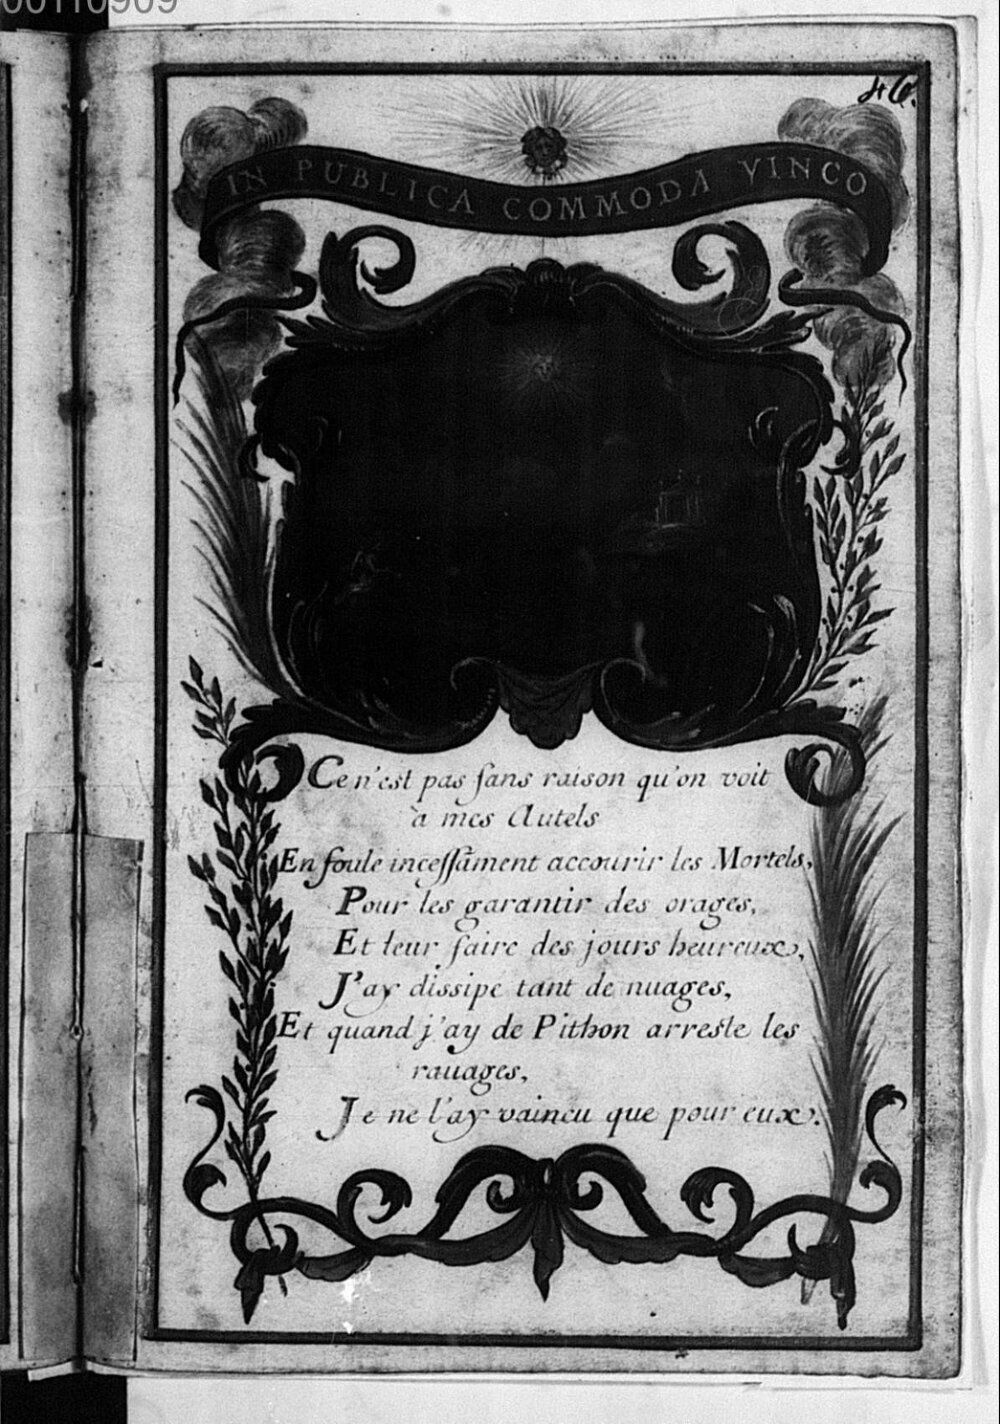 00110909
46.
IN PUBLICA COMMODA VINCO
Ce n'est pas sans raison qu'on voit
à mes Autels
En foule incessãment accourir les Mortels,
Pour les garantir des orages,
Et leur faire des jours heureux,
J'ay dissipé tant de nuages,
Et quand j'ay de Pithon arresté les
rauages,
Je ne l'ay vaincu que pour eux.